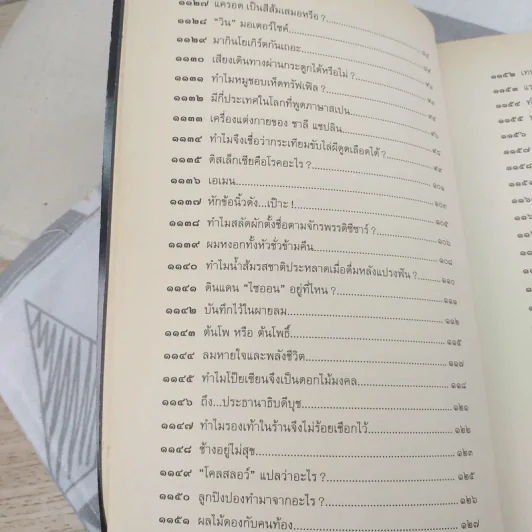 ๑๑๒๗ แครอต เป็นสีส้มเสมอหรือ ?
๑๑๒๘ "วิน" มอเตอร์ไซค์
๑๑๒๙ มากินโยเกิร์ตกันเถอะ
๑๑๓๐ เสียงเดินทางผ่านกระดูกได้หรือไม่ ?
๑๑๓๑ ทำไมหมูชอบเห็ดทรัฟเฟิล ?
๑๑๓๒ มีกี่ประเทศในโลกที่พูดภาษาสเปน
๑๑๓๓ เครื่องแต่งกายของ ชาลี แชปลิน
๑๑๓๔ ทำไมจึงเชื่อว่ากระเทียมขับไล่ผีดูดเลือดได้ ? ๙๘
๑๑๓๕ ดิสเล็กเซียคือโรคอะไร ? ๙๙
๑๑๓๖ เอเมน ๑๐๑
๑๑๓๗ หักข้อนิ้วดัง...เป๊าะ ! ๑๐๓
๑๑๓๘ ทำไมสลัดผักตั้งชื่อตามจักรพรรดิซีซาร์ ? ๑๐๕
๑๑๓๙ ผมหงอกทั้งหัวชั่วข้ามคืน ๑๐๖
๑๑๔๐ ทำไมน้ำส้มรสชาติประหลาดเมื่อดื่มหลังแปรงฟัน ? ๑๐๘
๑๑๔๑ ดินแดน "ไซออน" อยู่ที่ไหน ? ๑๑๑
๑๑๔๒ บันทึกไว้ในผายลม ๑๑๒
๑๑๔๓ ต้นโพ หรือ ต้นโพธิ์ ๑๑๕
๑๑๔๔ ลมหายใจและพลังชีวิต ๑๑๗
๑๑๔๕ ทำไมโป๊ยเซียนจึงเป็นดอกไม้มงคล ๑๑๘
๑๑๔๖ ถึง...ประธานาธิบดีบุช ๑๒๑
๑๑๔๗ ทำไมรองเท้าในร้านจึงไม่ร้อยเชือกไว้ ๑๒๒
๑๑๔๘ ช้างอยู่ไม่สุข ๑๒๓
๑๑๔๙ "โคลสลอว์" แปลว่าอะไร ? ๑๒๕
๑๑๕๐ ลูกปิงปองทำมาจากอะไร ? ๑๒๖
๑๑๕๑ ผลไม้ดองกับคนท้อง ๑๒๗
๑๑๕๒
๑๑๕๓
๑๑๕๔
๑๑๕๕
๑๑๕๖
๑๑๕๗